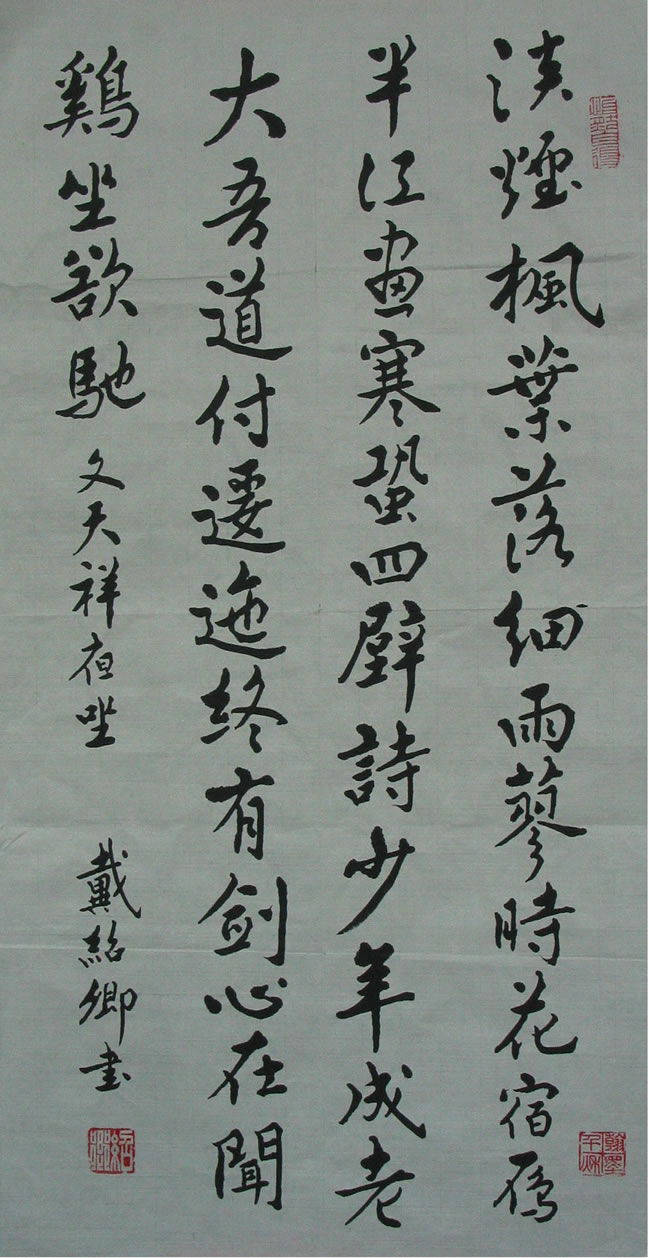 淡煙楓葉落細雨蓼時花宿雁
半江畫寒蛩四壁詩少年成老
大吾道付逶迤終有劍心在聞
鷄坐欲馳文天祥夜坐 戴紹卿書